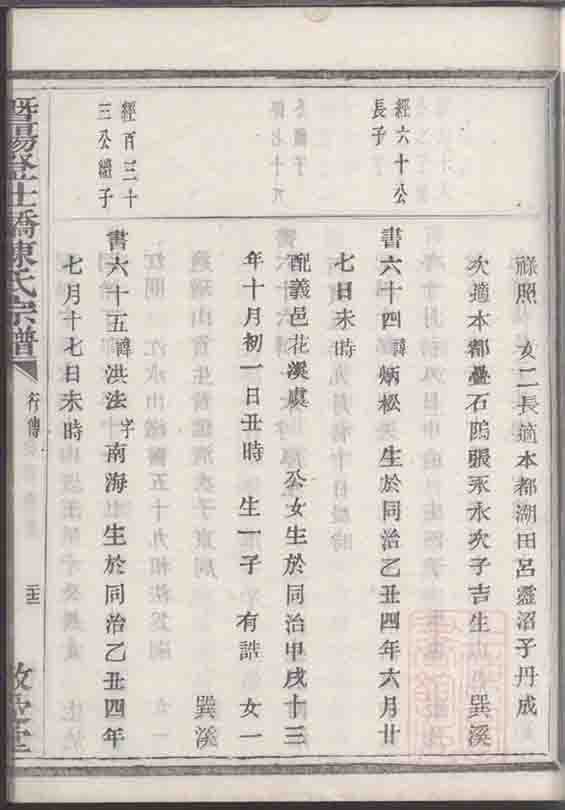 祿照 女二長適本都湖田呂靈沼子丹成
次適本都疊石隖張承永次子吉生 巽溪
經六十公
長子
書六十四諱炳松 生於同治乙丑四年六月廿
七日未時
配義邑花溪虞 公女生於同治甲戌十三
年十月初一日丑時 生一子 有誥 女一
巽溪
經百三十
三公繼子
書六十五諱洪法字南海生於同治乙丑四年
七月十七日未時
暨陽登仕橋陳氏宗譜
行傳